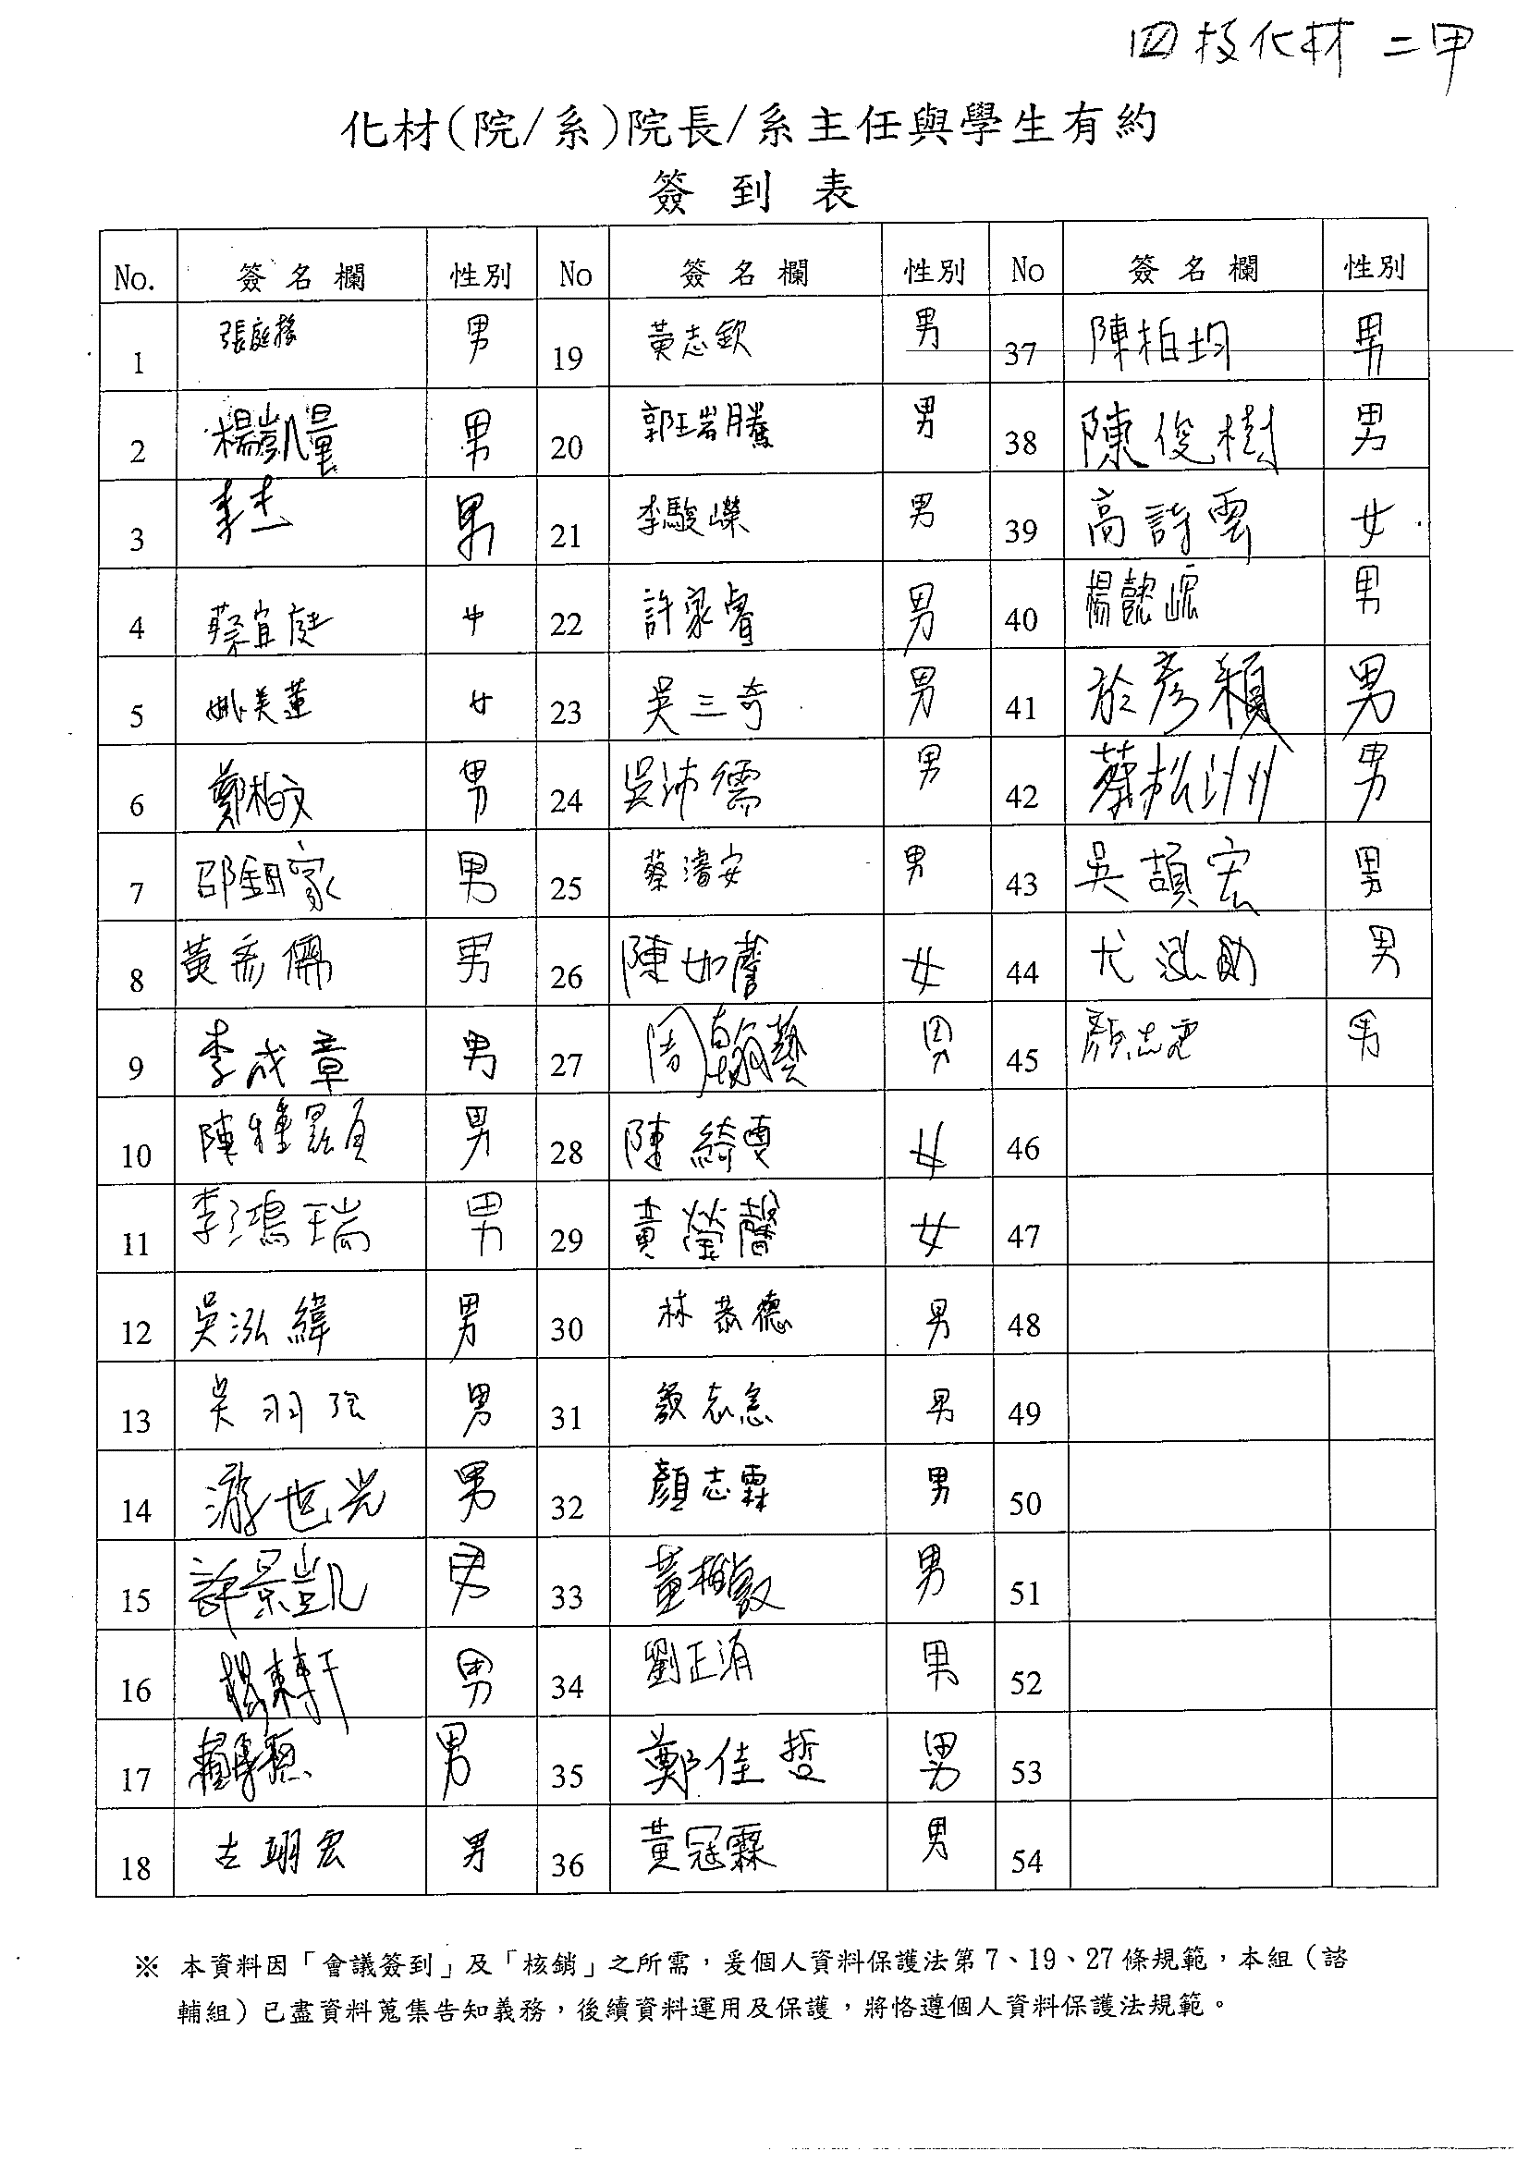 四技化材二甲
化材(院/系)院長/系主任與學生有約
簽到表
No. 簽名欄 性別 No 簽名欄 性別 No 簽名欄 性別
1 張庭 男 19 黃志欽 男 37 陳柏均 男
2 楊凱量 男 20 郭玨岩騰 男 38 陳俊樹 男
3 李杰 男 21 李駿嶸 男 39 高詩雲 女
4 蔡宜庭 女 22 許家睿 男 40 楊懿 男
5 姚美蓮 女 23 吳三奇 男 41 於彥穎 男
6 鄭柏文 男 24 吳沛儒 男 42 蔡松洲 男
7 邵鈤家 男 25 蔡濬安 男 43 吳頡宏 男
8 黃彥儒 男 26 陳如馨 女 44 尤泓勛 男
9 李成章 男 27 周翰藝 男 45 顏志 男
10 陳 男 28 陳綺雯 女 46
11 李鴻瑞 男 29 黃瑩馨 女 47
12 吳泓緯 男 30 林恭德 男 48
13 吳羽弦 男 31 志 男 49
14 游世光 男 32 顏志霖 男 50
15 許景凱 男 33 董栯毅 男 51
16 楊東軒 男 34 劉正淯 男 52
17 賴 男 35 鄭佳哲 男 53
18 古翊宏 男 36 黃冠霖 男 54
※ 本資料因「會議簽到」及「核銷」之所需，爰個人資料保護法第7、19、27條規範，本組（諮
輔組）已盡資料蒐集告知義務，後續資料運用及保護，將恪遵個人資料保護法規範。